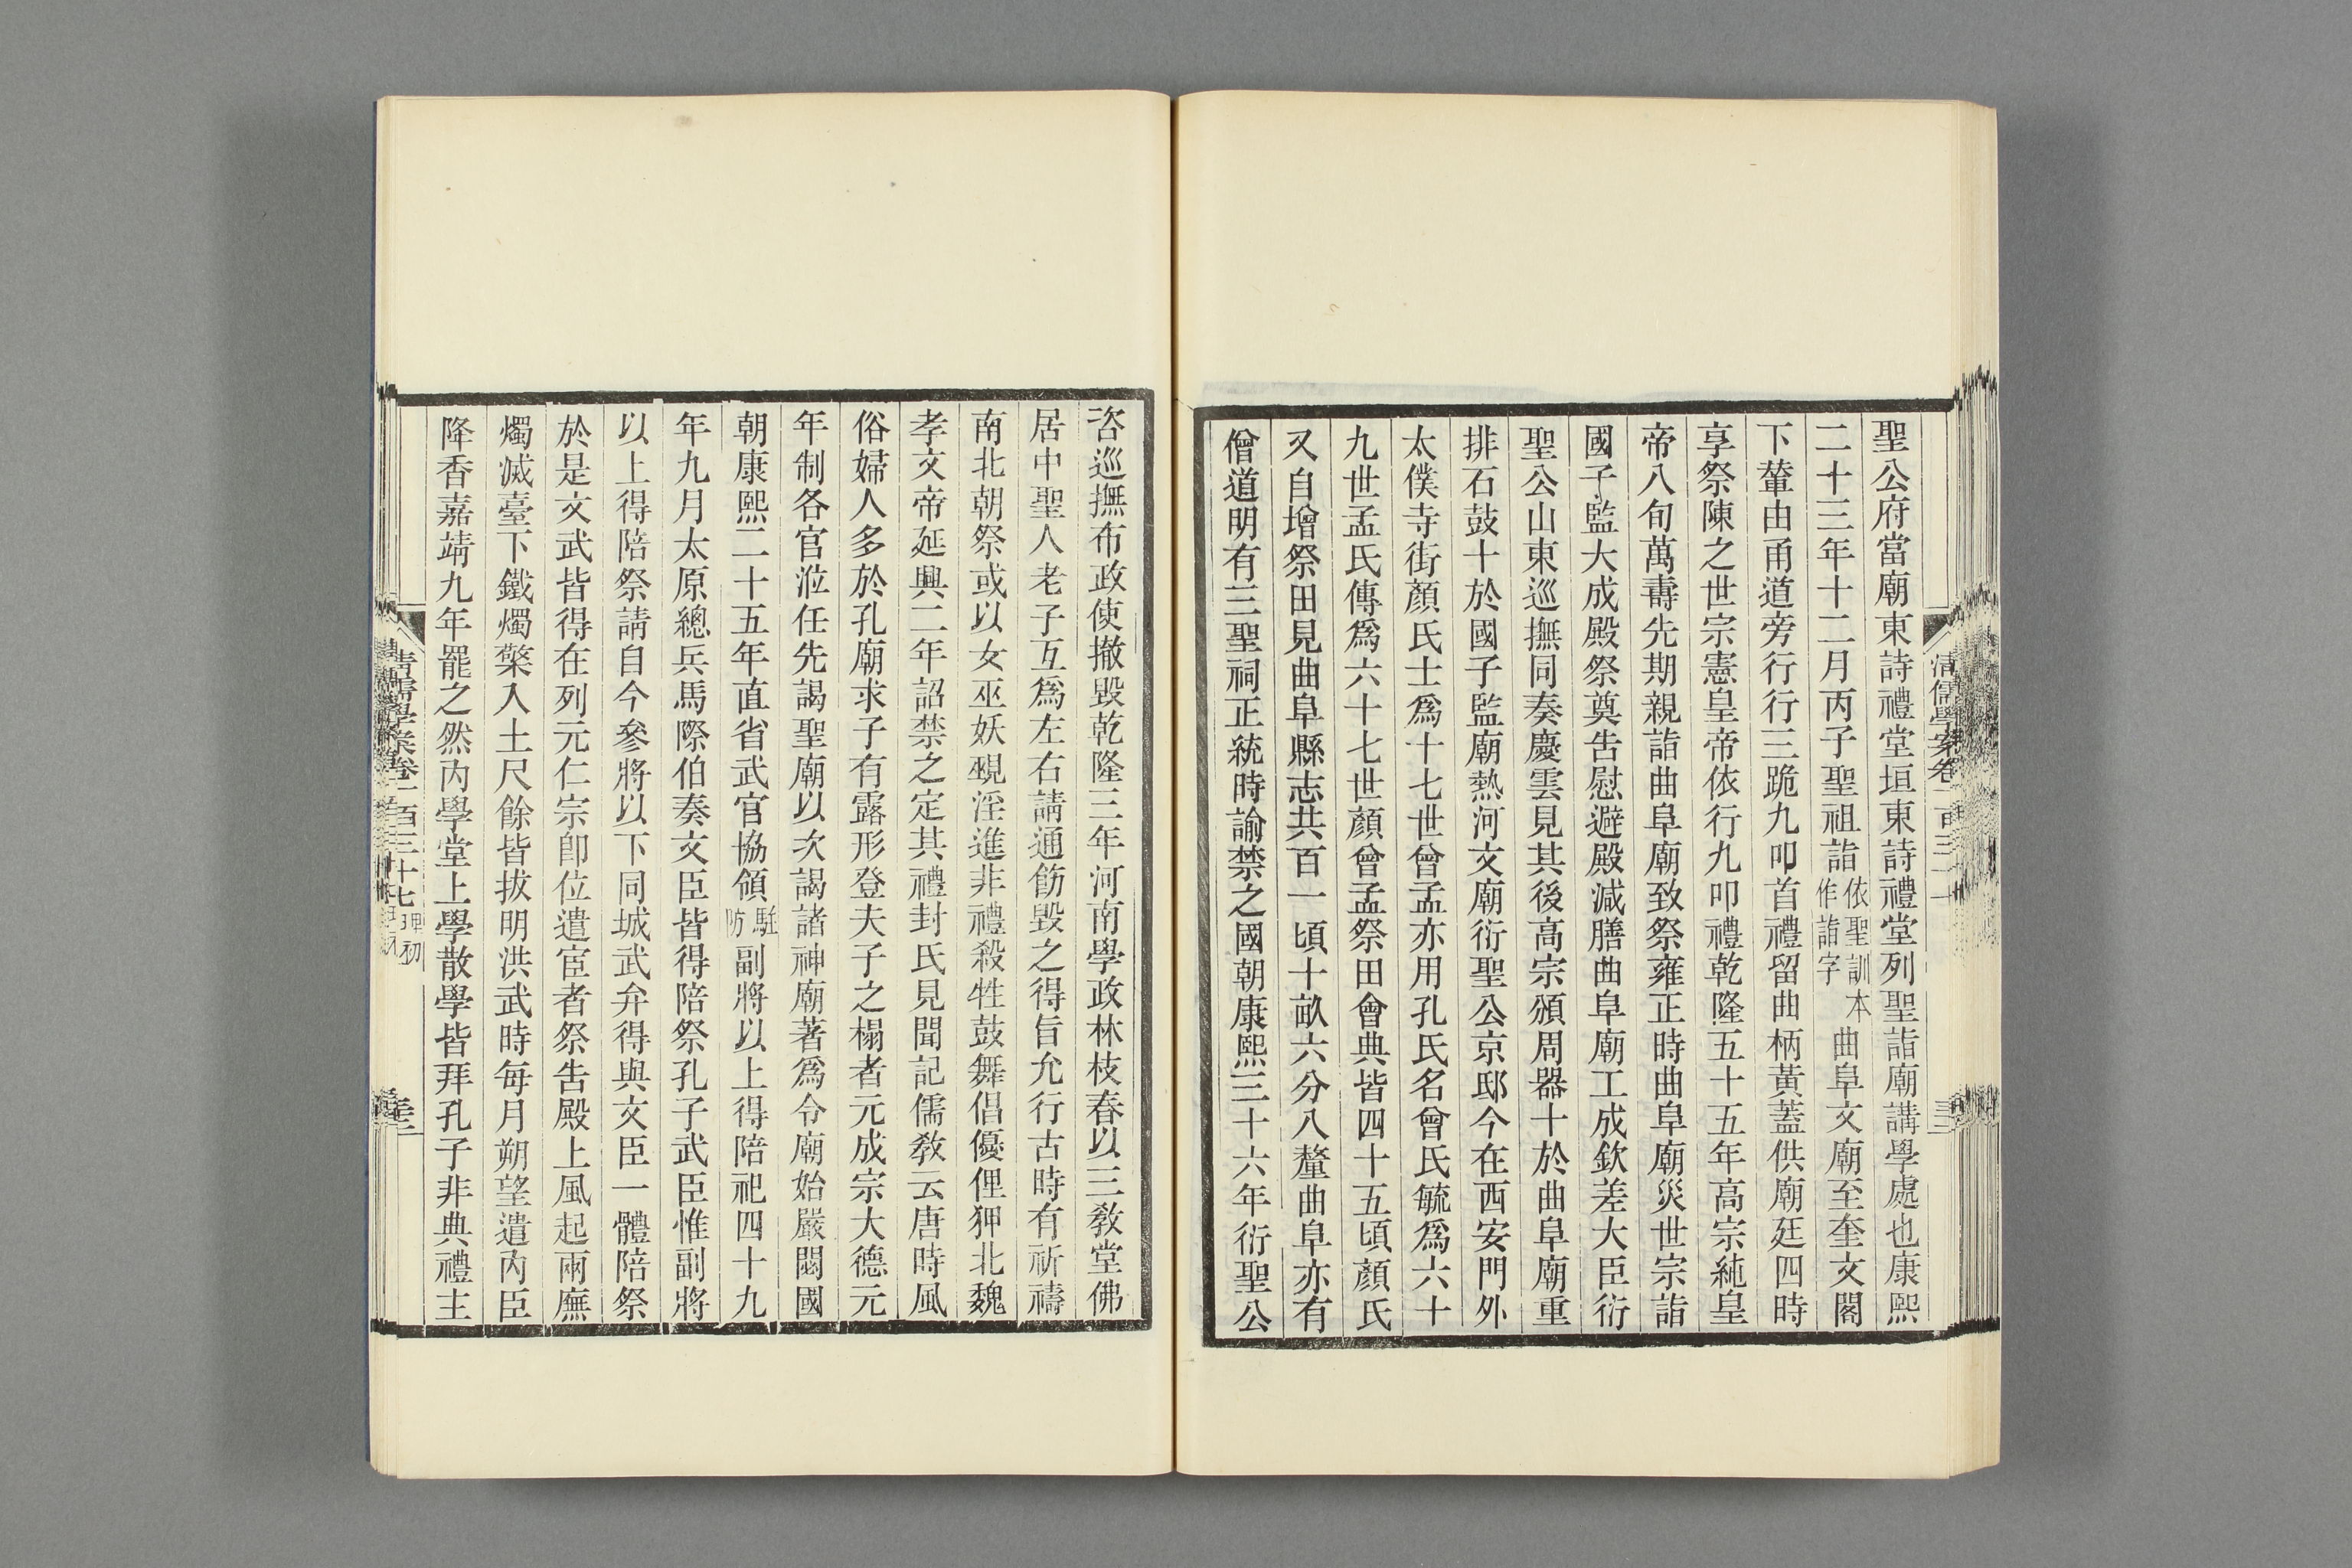 聖公府當廟東詩禮堂垣東詩禮堂列聖詣廟講學處也康熙
二十三年十二月丙子聖祖詣依聖訓本作詣字曲阜文廟至奎文閣
下輦由甬道旁行行三跪九叩首禮留曲柄黃蓋供廟廷四時
享祭陳之世宗憲皇帝依行九叩禮乾隆五十五年高宗純皇
帝八旬萬壽先期親詣曲阜廟致祭雍正時曲阜廟災世宗詣
國子監大成殿祭奠告慰避殿減膳曲阜廟工成欽差大臣衍
聖公山東巡撫同奏慶雲見其後高宗頒周器十於曲阜廟重
排石鼓十於國子監廟熱河文廟衍聖公京邸今在西安門外
太僕寺街顏氏士爲十七世曾孟亦用孔氏名曾氏毓爲六十
九世孟氏傳爲六十七世顏曾孟祭田會典皆四十五頃顏氏
又自增祭田見曲阜縣志共百一頃十畝六分八釐曲阜亦有
僧道明有三聖祠正統時諭禁之國朝康熙三十六年衍聖公
咨巡撫布政使撤毀乾隆三年河南學政林枝春以三敎堂佛
居中聖人老子互爲左右請通飭毀之得旨允行古時有祈禱
南北朝祭或以女巫妖覡淫進非禮殺牲鼓舞倡優俚狎北魏
孝文帝延興二年詔禁之定其禮封氏見聞記儒敎云唐時風
俗婦人多於孔廟求子有露形登夫子之榻者元成宗大德元
年制各官涖任先謁聖廟以次謁諸神廟著爲令廟始嚴閟國
朝康熙二十五年直省武官協領駐防副將以上得陪祀四十九
年九月太原總兵馬際伯奏文臣皆得陪祭孔子武臣惟副將
以上得陪祭請自今參將以下同城武弁得與文臣一體陪祭
於是文武皆得在列元仁宗卽位遣宦者祭告殿上風起兩廡
燭滅臺下鐵燭檠入土尺餘皆拔明洪武時每月朔望遣內臣
降香嘉靖九年罷之然內學堂上學散學皆拜孔子非典禮主
清儒學案卷一百三十七 理初